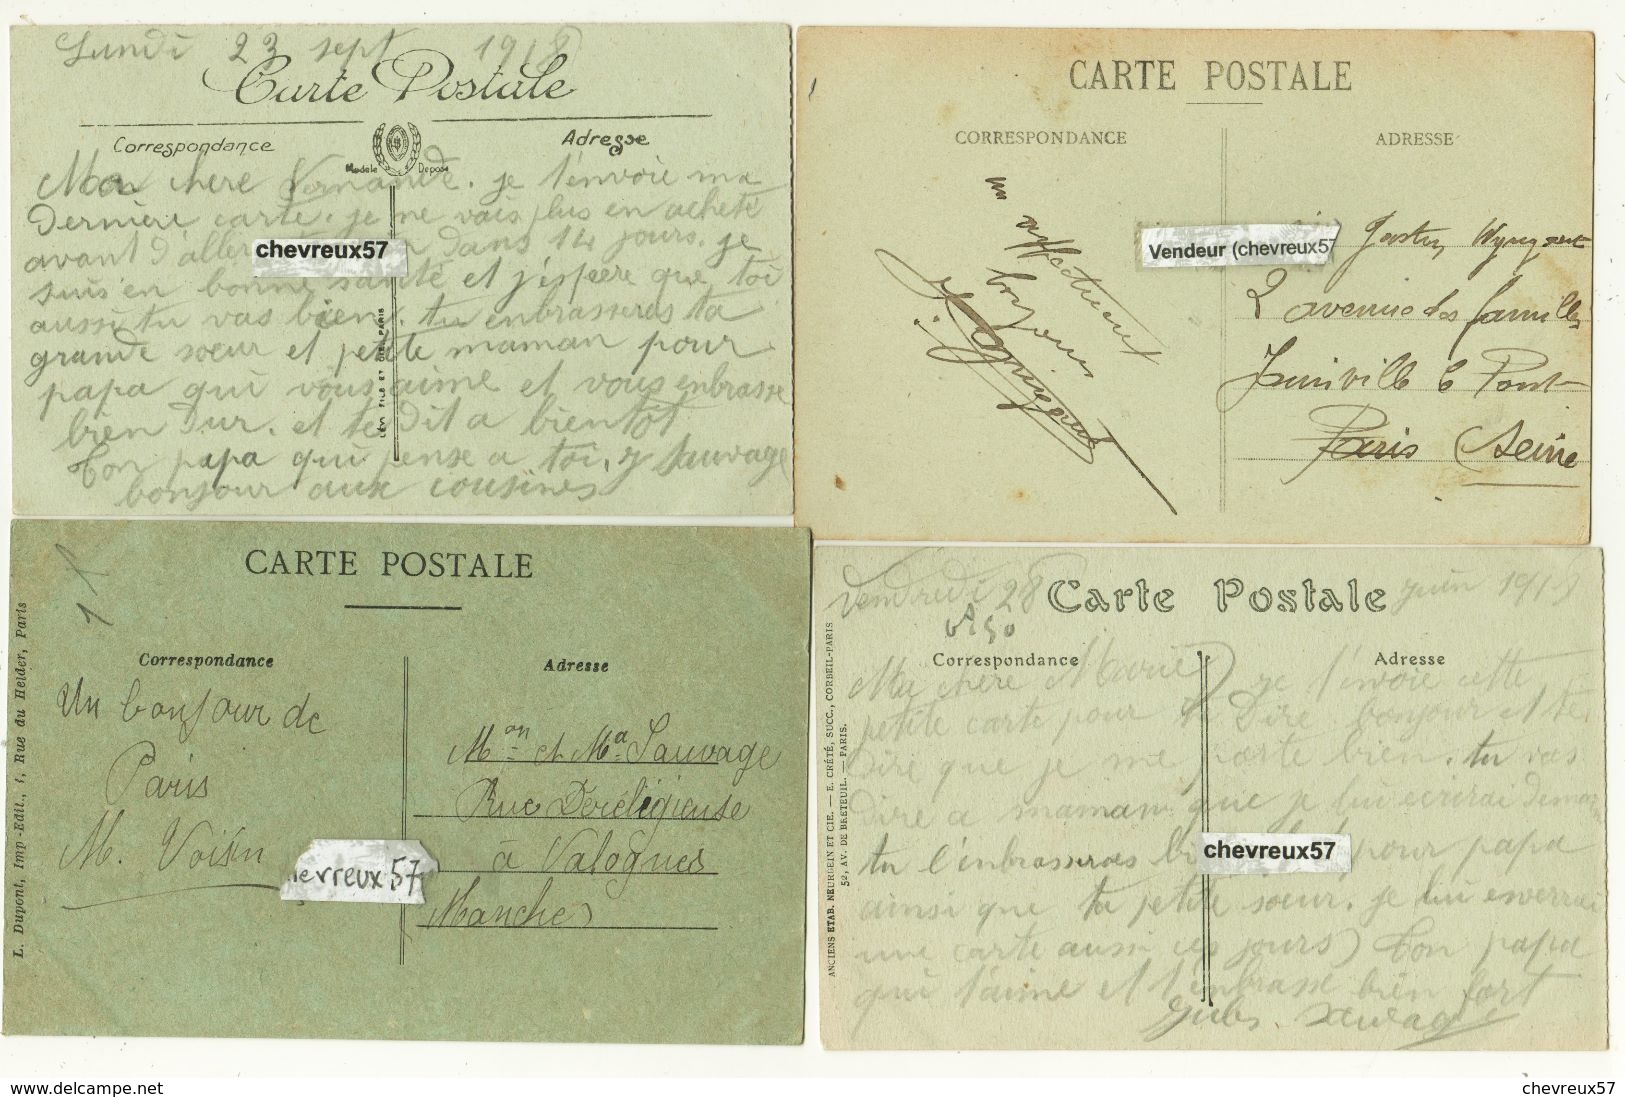 Lundi 23 sept 1918
Carte Postale
Correspondance
Adresse
Modèle Déposé
Ma chere Fernande. je t'envoie ma
Dernière carte. je ne vais plus en acheté
avant d'aller dans 14 jours. je
suis en bonne santé et j'espère que toi
aussi tu vas bien. tu enbrasseras ta
grande soeur et petite maman pour
papa qui vous aime et vous enbrasse
bien Dur. et te Dit a bientôt
Ton papa qui pense a toi. J Sauvage
bonjour aux cousines
LÉVY FILS ET CIE PARIS
chevreux57
CARTE POSTALE
CORRESPONDANCE
ADRESSE
un affectueux
bonjour
Vendeur (chevreux57
Gaston
2 avenue des familles
Joinville le Pont
Paris (Seine
CARTE POSTALE
Correspondance
Adresse
L. Dupont, Imp-Edit., 1, Rue du Helder, Paris
Un bonjour de
Paris
M. Voisin
Mon et Ma Sauvage
Rue Deréligieuse
à Valognes
Manche)
hevreux 57
Vendredi 28 juin 1918
Carte Postale
Correspondance
Adresse
ANCIENS ETAB. NEURDEIN ET CIE. — E. CRÉTÉ, SUCC., CORBEIL-PARIS
52, AV. DE BRETEUIL. — PARIS.
Ma chere Marie) je t'envoie cette
petite carte pour te Dire bonjour et te
Dire que je me porte bien. tu vas
Dire a maman que je lui ecrirai demain
tu l'enbrasseras pour papa
ainsi que ta petite soeur. je lui enverrai
une carte aussi ces jours) Ton papa
qui t'aime et t'enbrasse bien fort
Jules Sauvage
chevreux57
www.delcampe.net
chevreux57